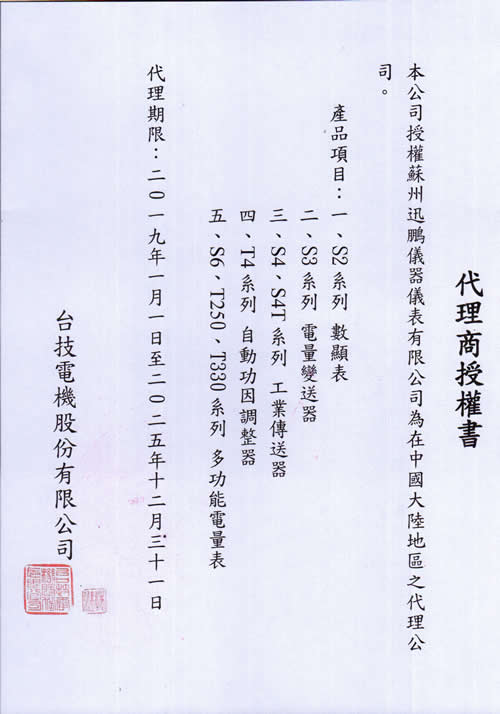 代理商授權書
本公司授權蘇州迅鵬儀器儀表有限公司為在中國大陸地區之代理公
司。
產品項目：一、S2 系列 數顯表
二、S3 系列 電量變送器
三、S4、S4T 系列 工業傳送器
四、T4 系列 自動功因調整器
五、S6、T250、T330 系列 多功能電量表
代理期限：二〇一九年一月一日至二〇二五年十二月三十一日
台技電機股份有限公司